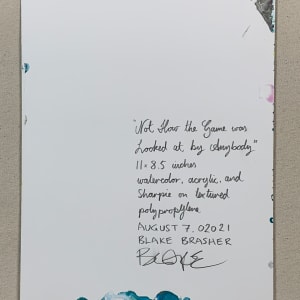 "Not How the Game was
Looked at, by Anybody"
11 x 8.5 inches
watercolor, acrylic, and
Sharpie on textured
polypropylene
AUGUST 7, 02021
BLAKE BRASHER